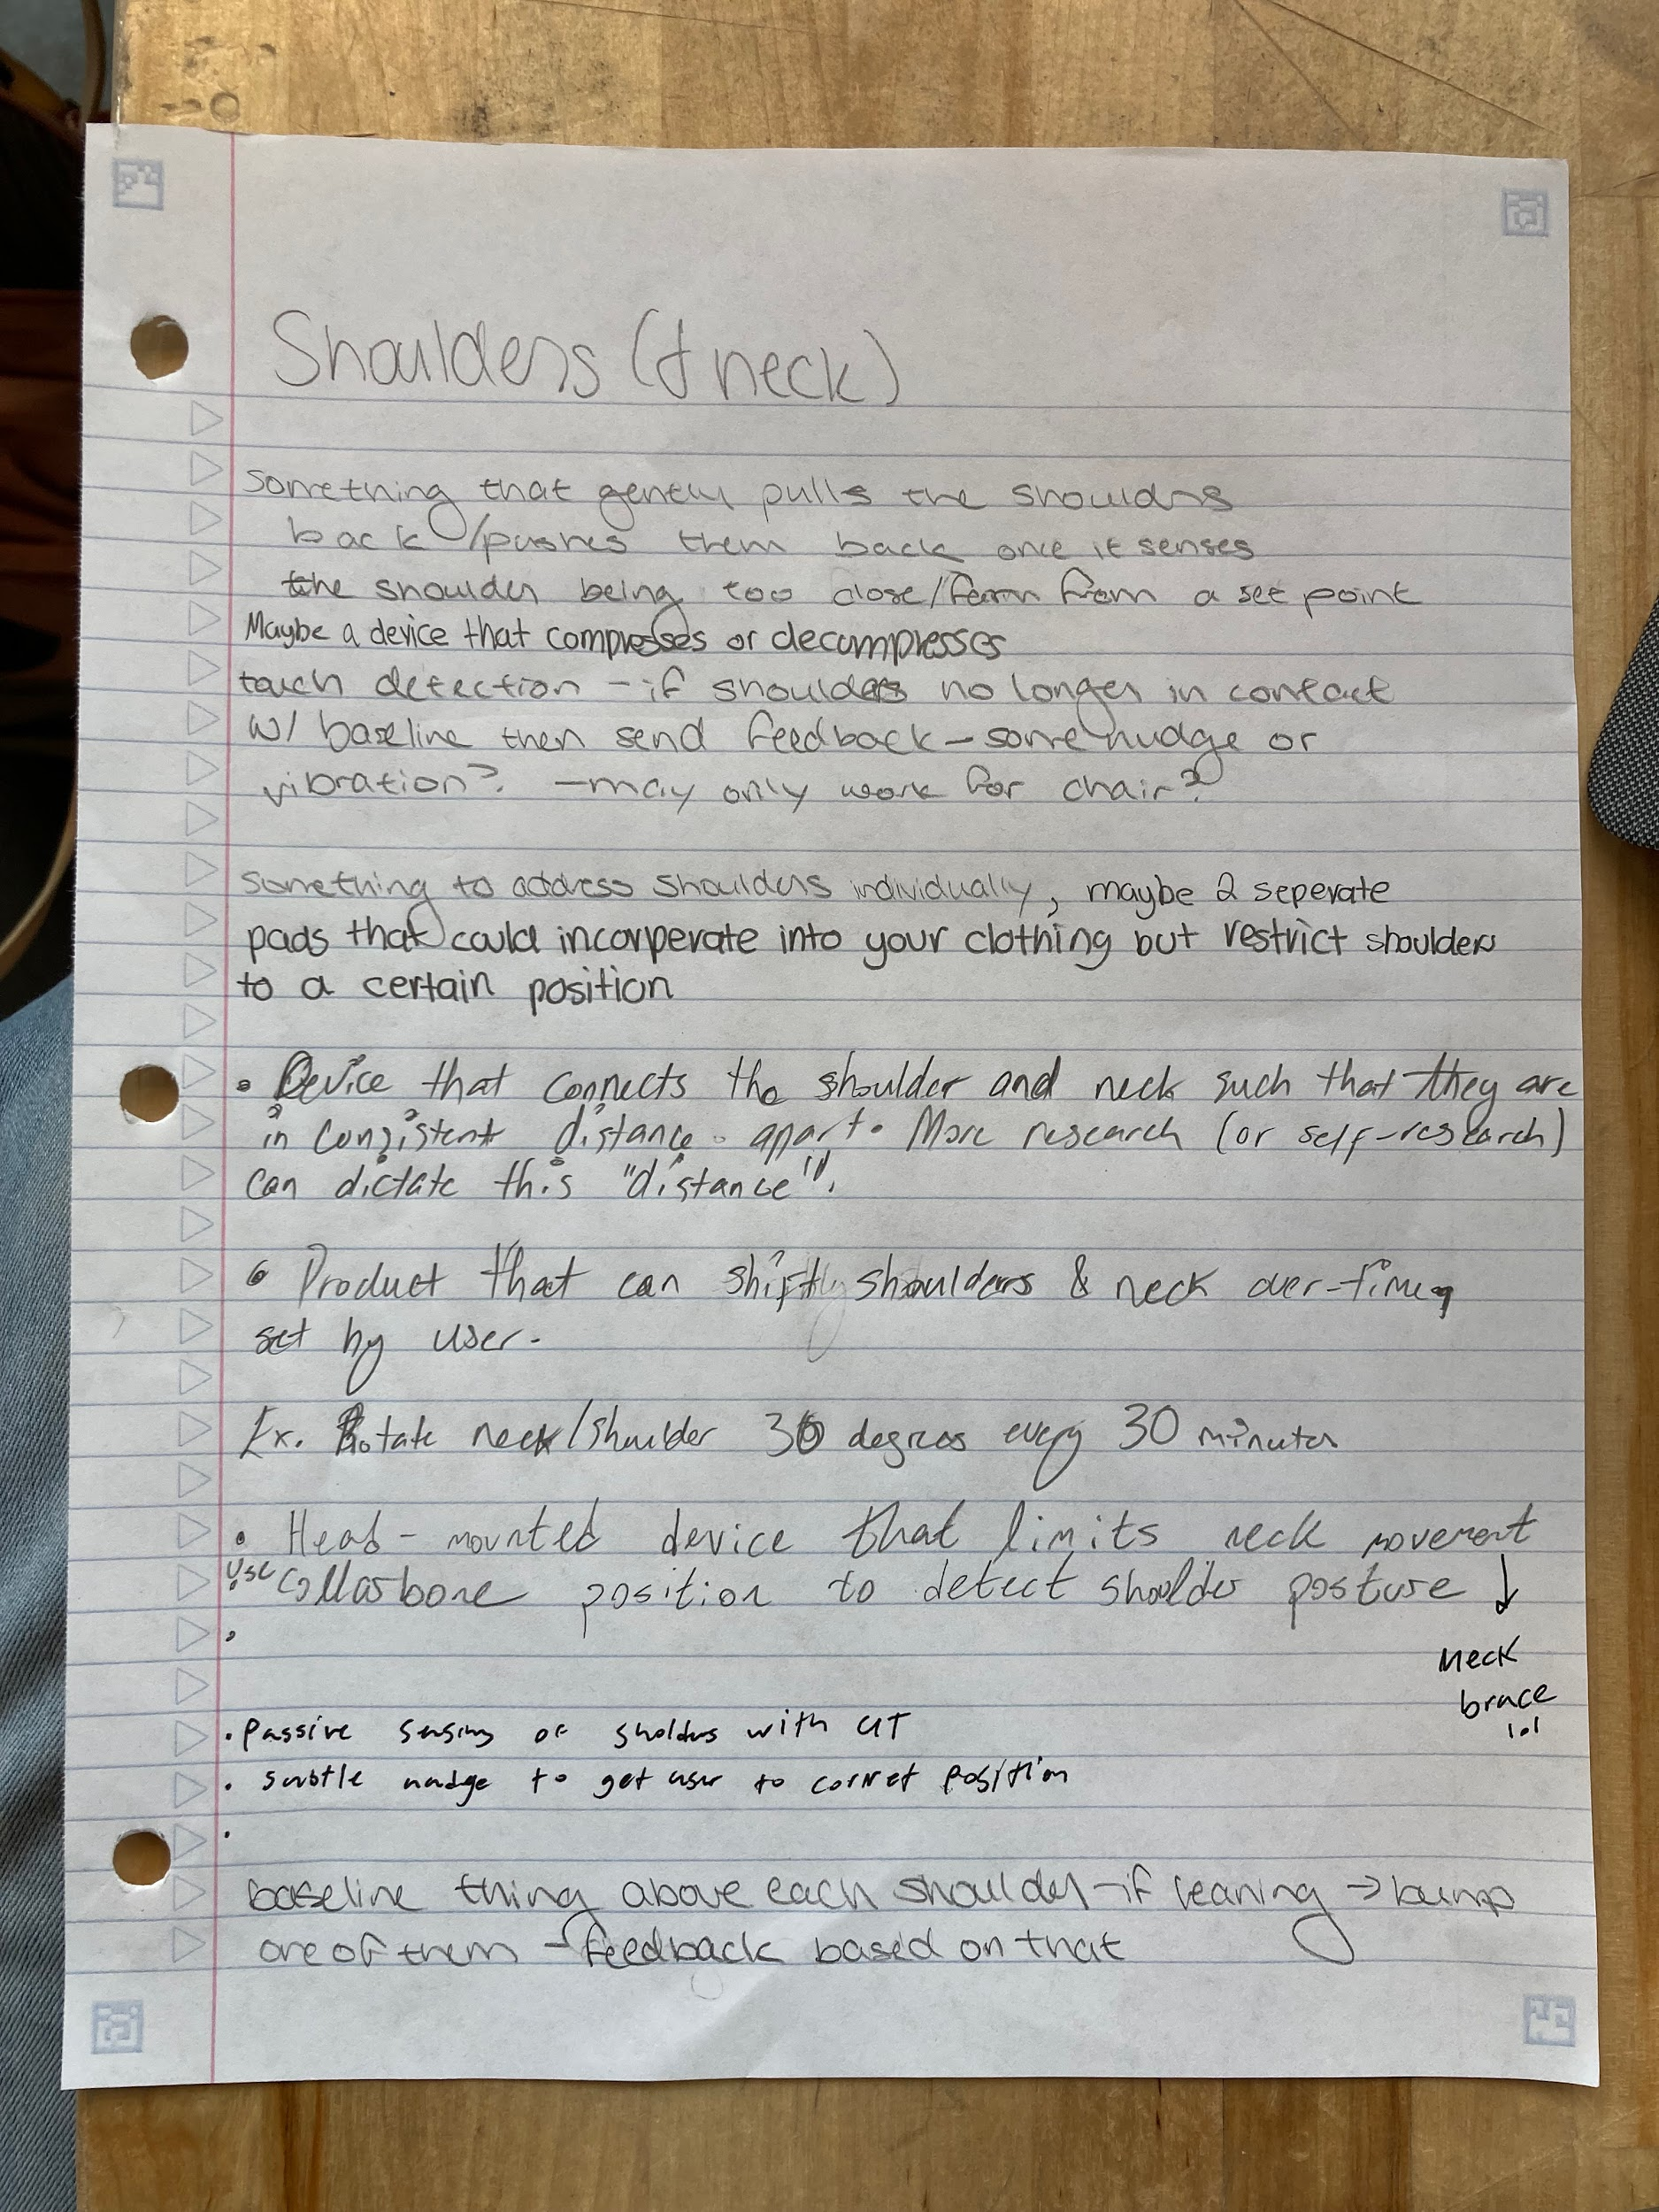 Shoulders (& neck)
something that gently pulls the shoulders
back/pushes them back once it senses
the shoulder being too close/far from a set point
Maybe a device that compresses or decompresses
touch detection - if shoulders no longer in contact
w/ baseline then send feedback - some nudge or
vibration? - may only work for chair?
something to address shoulders individually, maybe 2 seperate
pads that could incorperate into your clothing but restrict shoulders
to a certain position
• Device that connects the shoulder and neck such that they are
in consistent distance apart. More research (or self-research)
can dictate this "distance".
• Product that can shift shoulders & neck over-time,
set by user.
Ex. Rotate neck/shoulder 30 degrees every 30 minutes
• Head-mounted device that limits neck movement
Use Collarbone position to detect shoulder posture ↓
•
Neck
brace
lol
• Passive sensing of sholders with
• subtle nudge to get user to correct position
•
baseline thing above each shoulder - if leaning → bump
one of them - feedback based on that